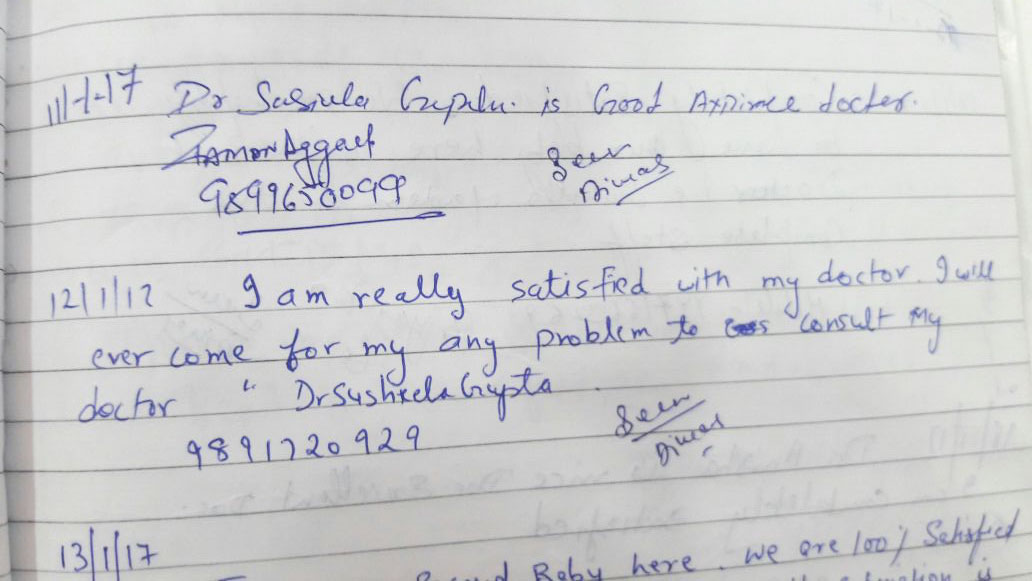 11/1/17 Dr Sasiula Gupta. is Good Axpimce docter.
Aggarl
9899650099
Seen
Diwas
12/1/17 I am really satisfied with my doctor. I will
ever come for my any problem to consult My
doctor " Dr Susheela Gupta
9891720929
Seen
Diwas
13/1/17
Second Baby here. we are 100% Satisfied
is